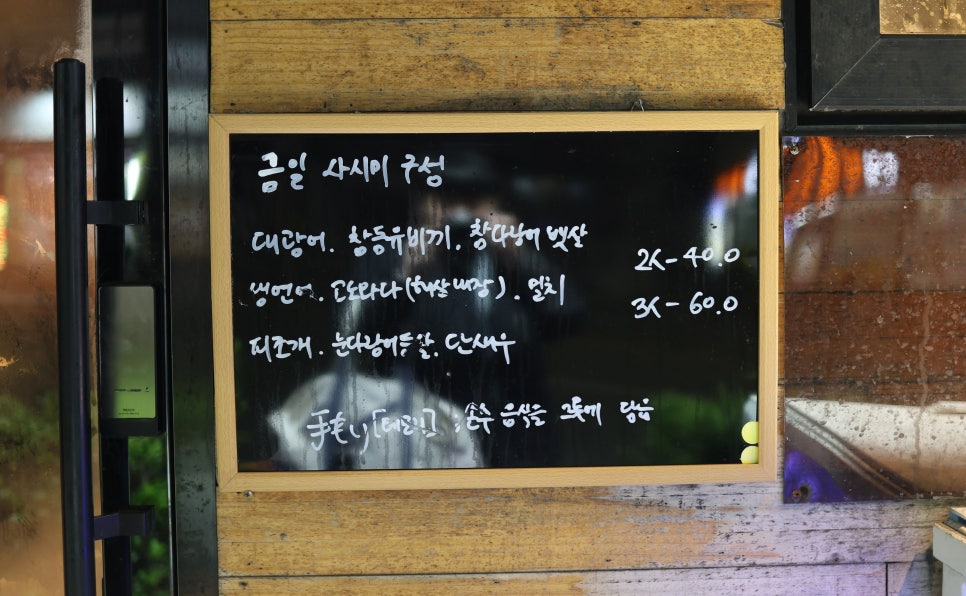 금일 사시미 구성
대광어. 참등유비끼. 참다랑어 뱃살
생연어. 고노와다(해삼내장). 멸치
2人-40.0
피조개. 눈다랑어등살. 단새우
3人-60.0
손수 음식을 그릇에 담음